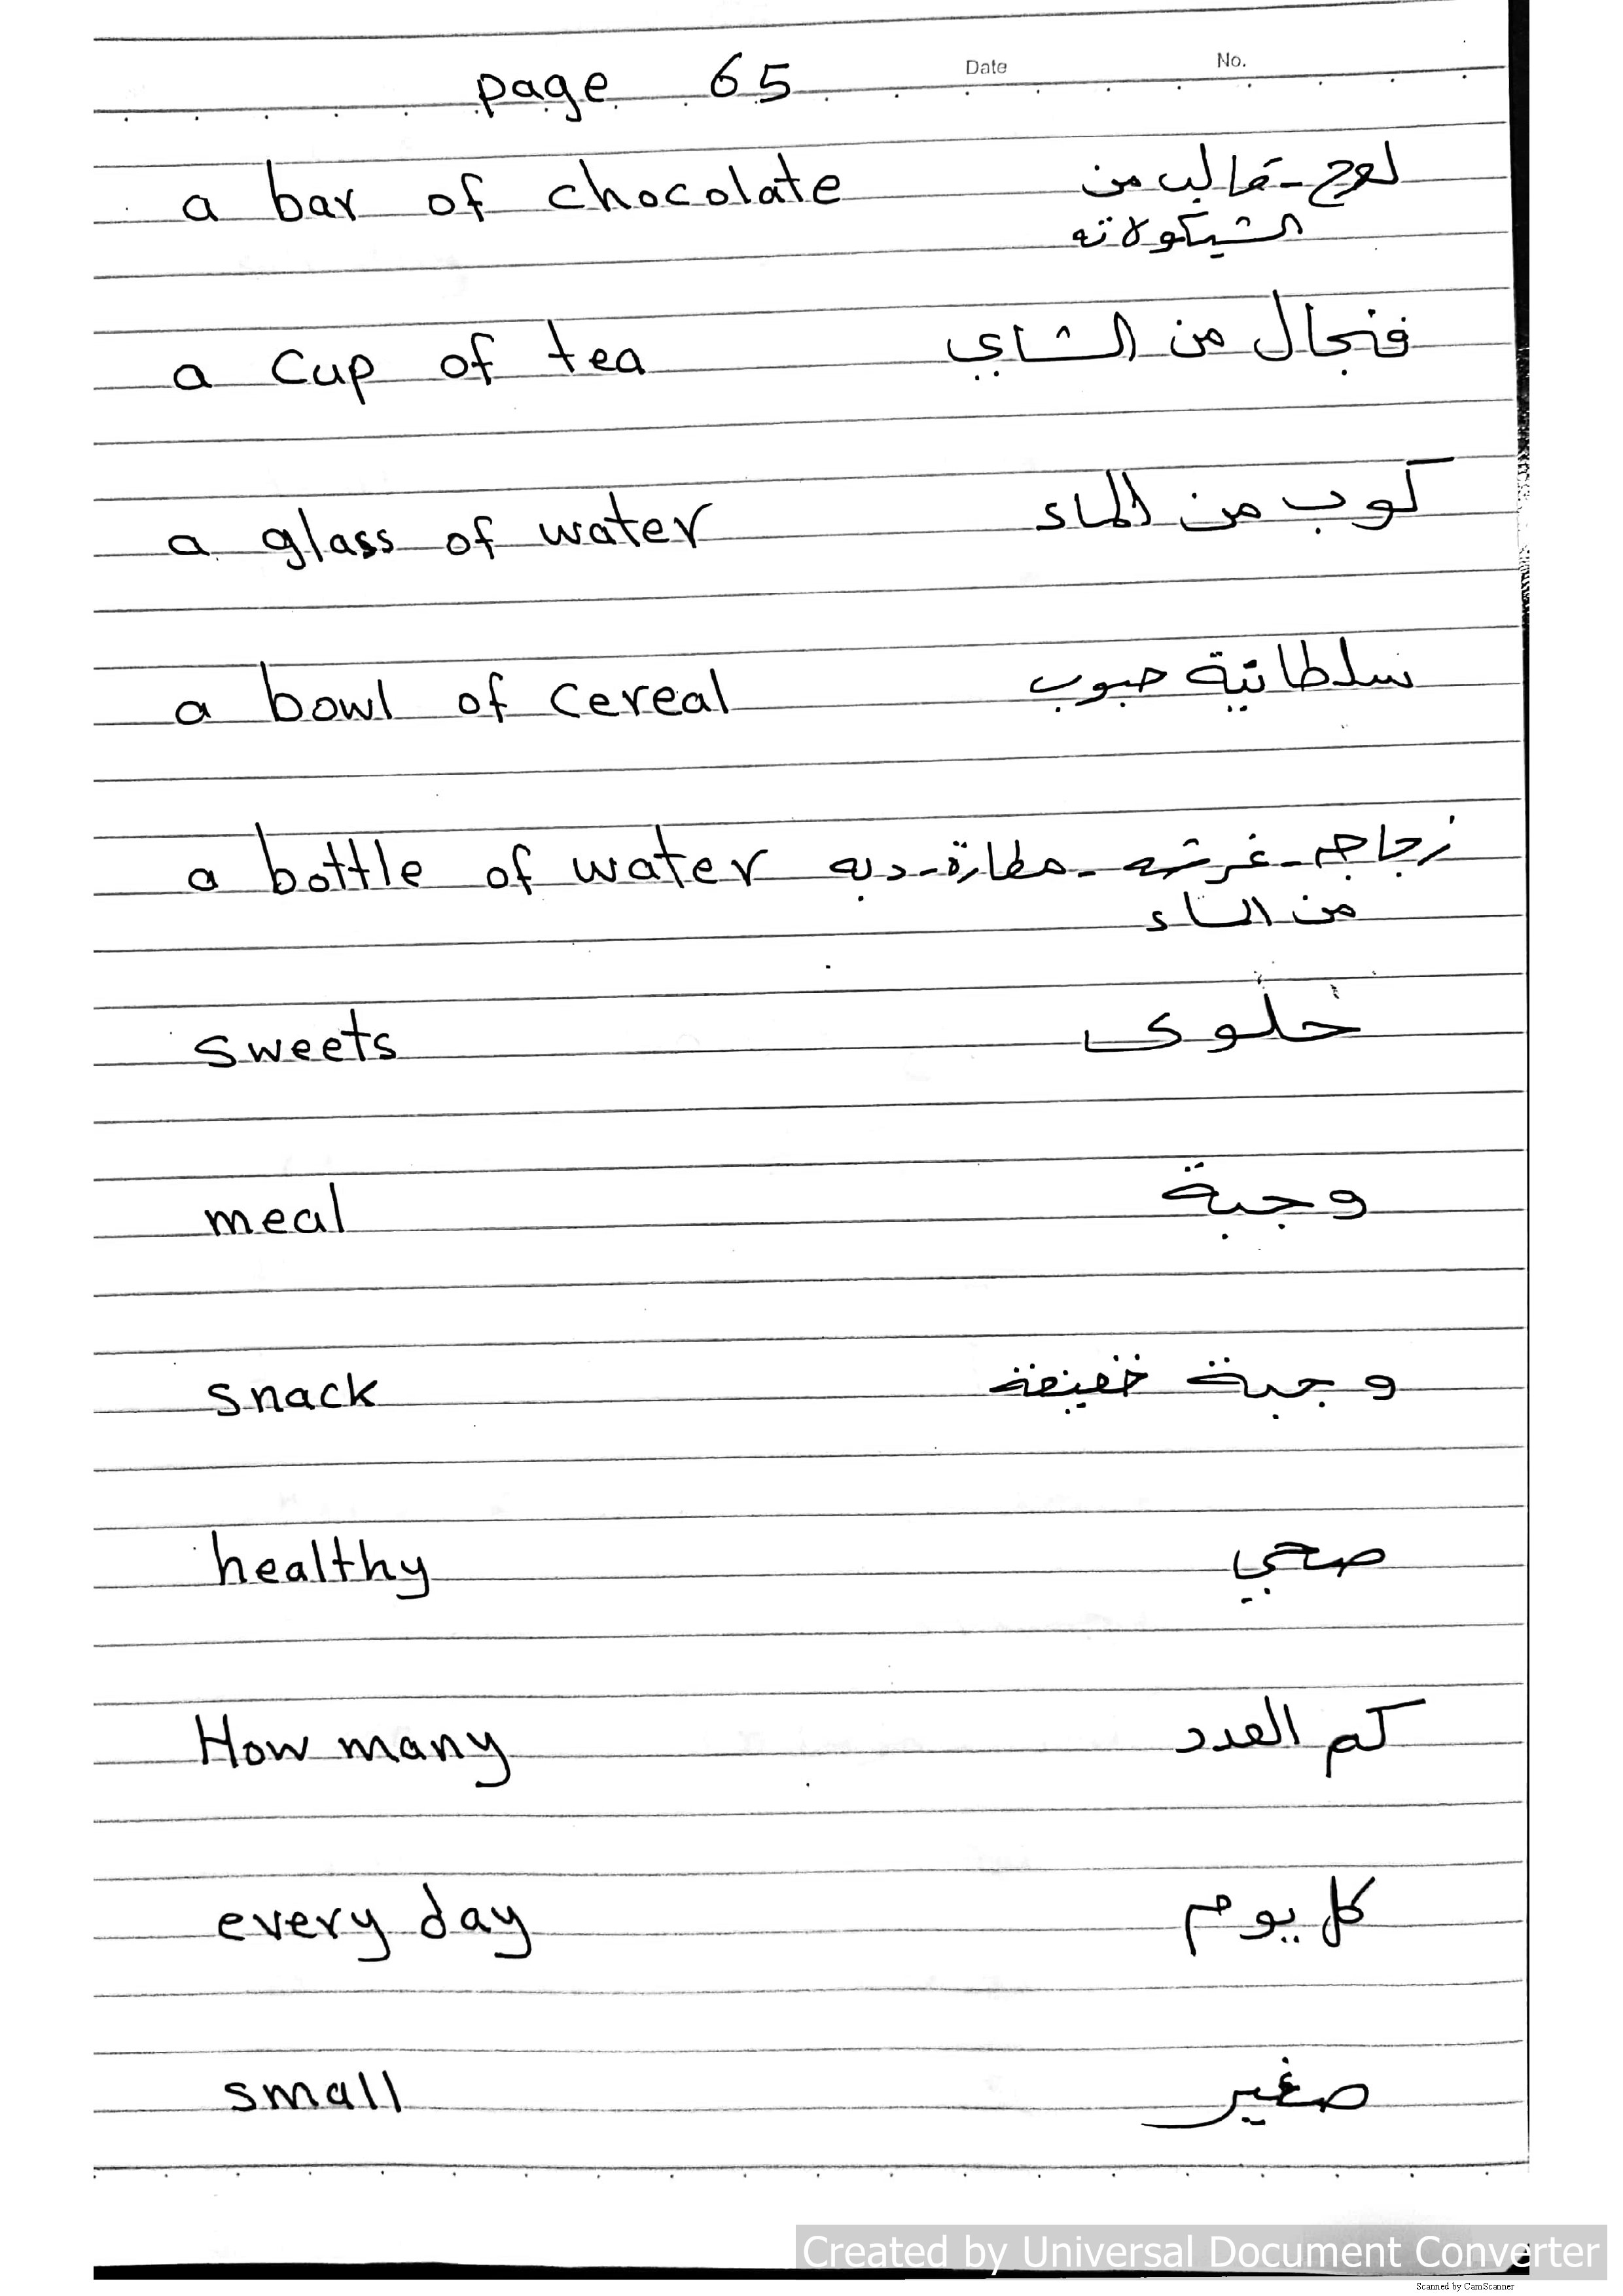 page 65
Date No.
a bar of chocolate لوح - قالب من
الشيكولاته
a cup of tea فنجال من الشاي
a glass of water كوب من الماء
a bowl of cereal سلطانية حبوب
a bottle of water زجاجه - غرشه - مطارة - دبه
من الماء
sweets حلوى
meal وجبة
snack وجبة خفيفة
healthy صحي
How many كم العدد
every day كل يوم
small صغير
Created by Universal Document Converter
Scanned by CamScanner